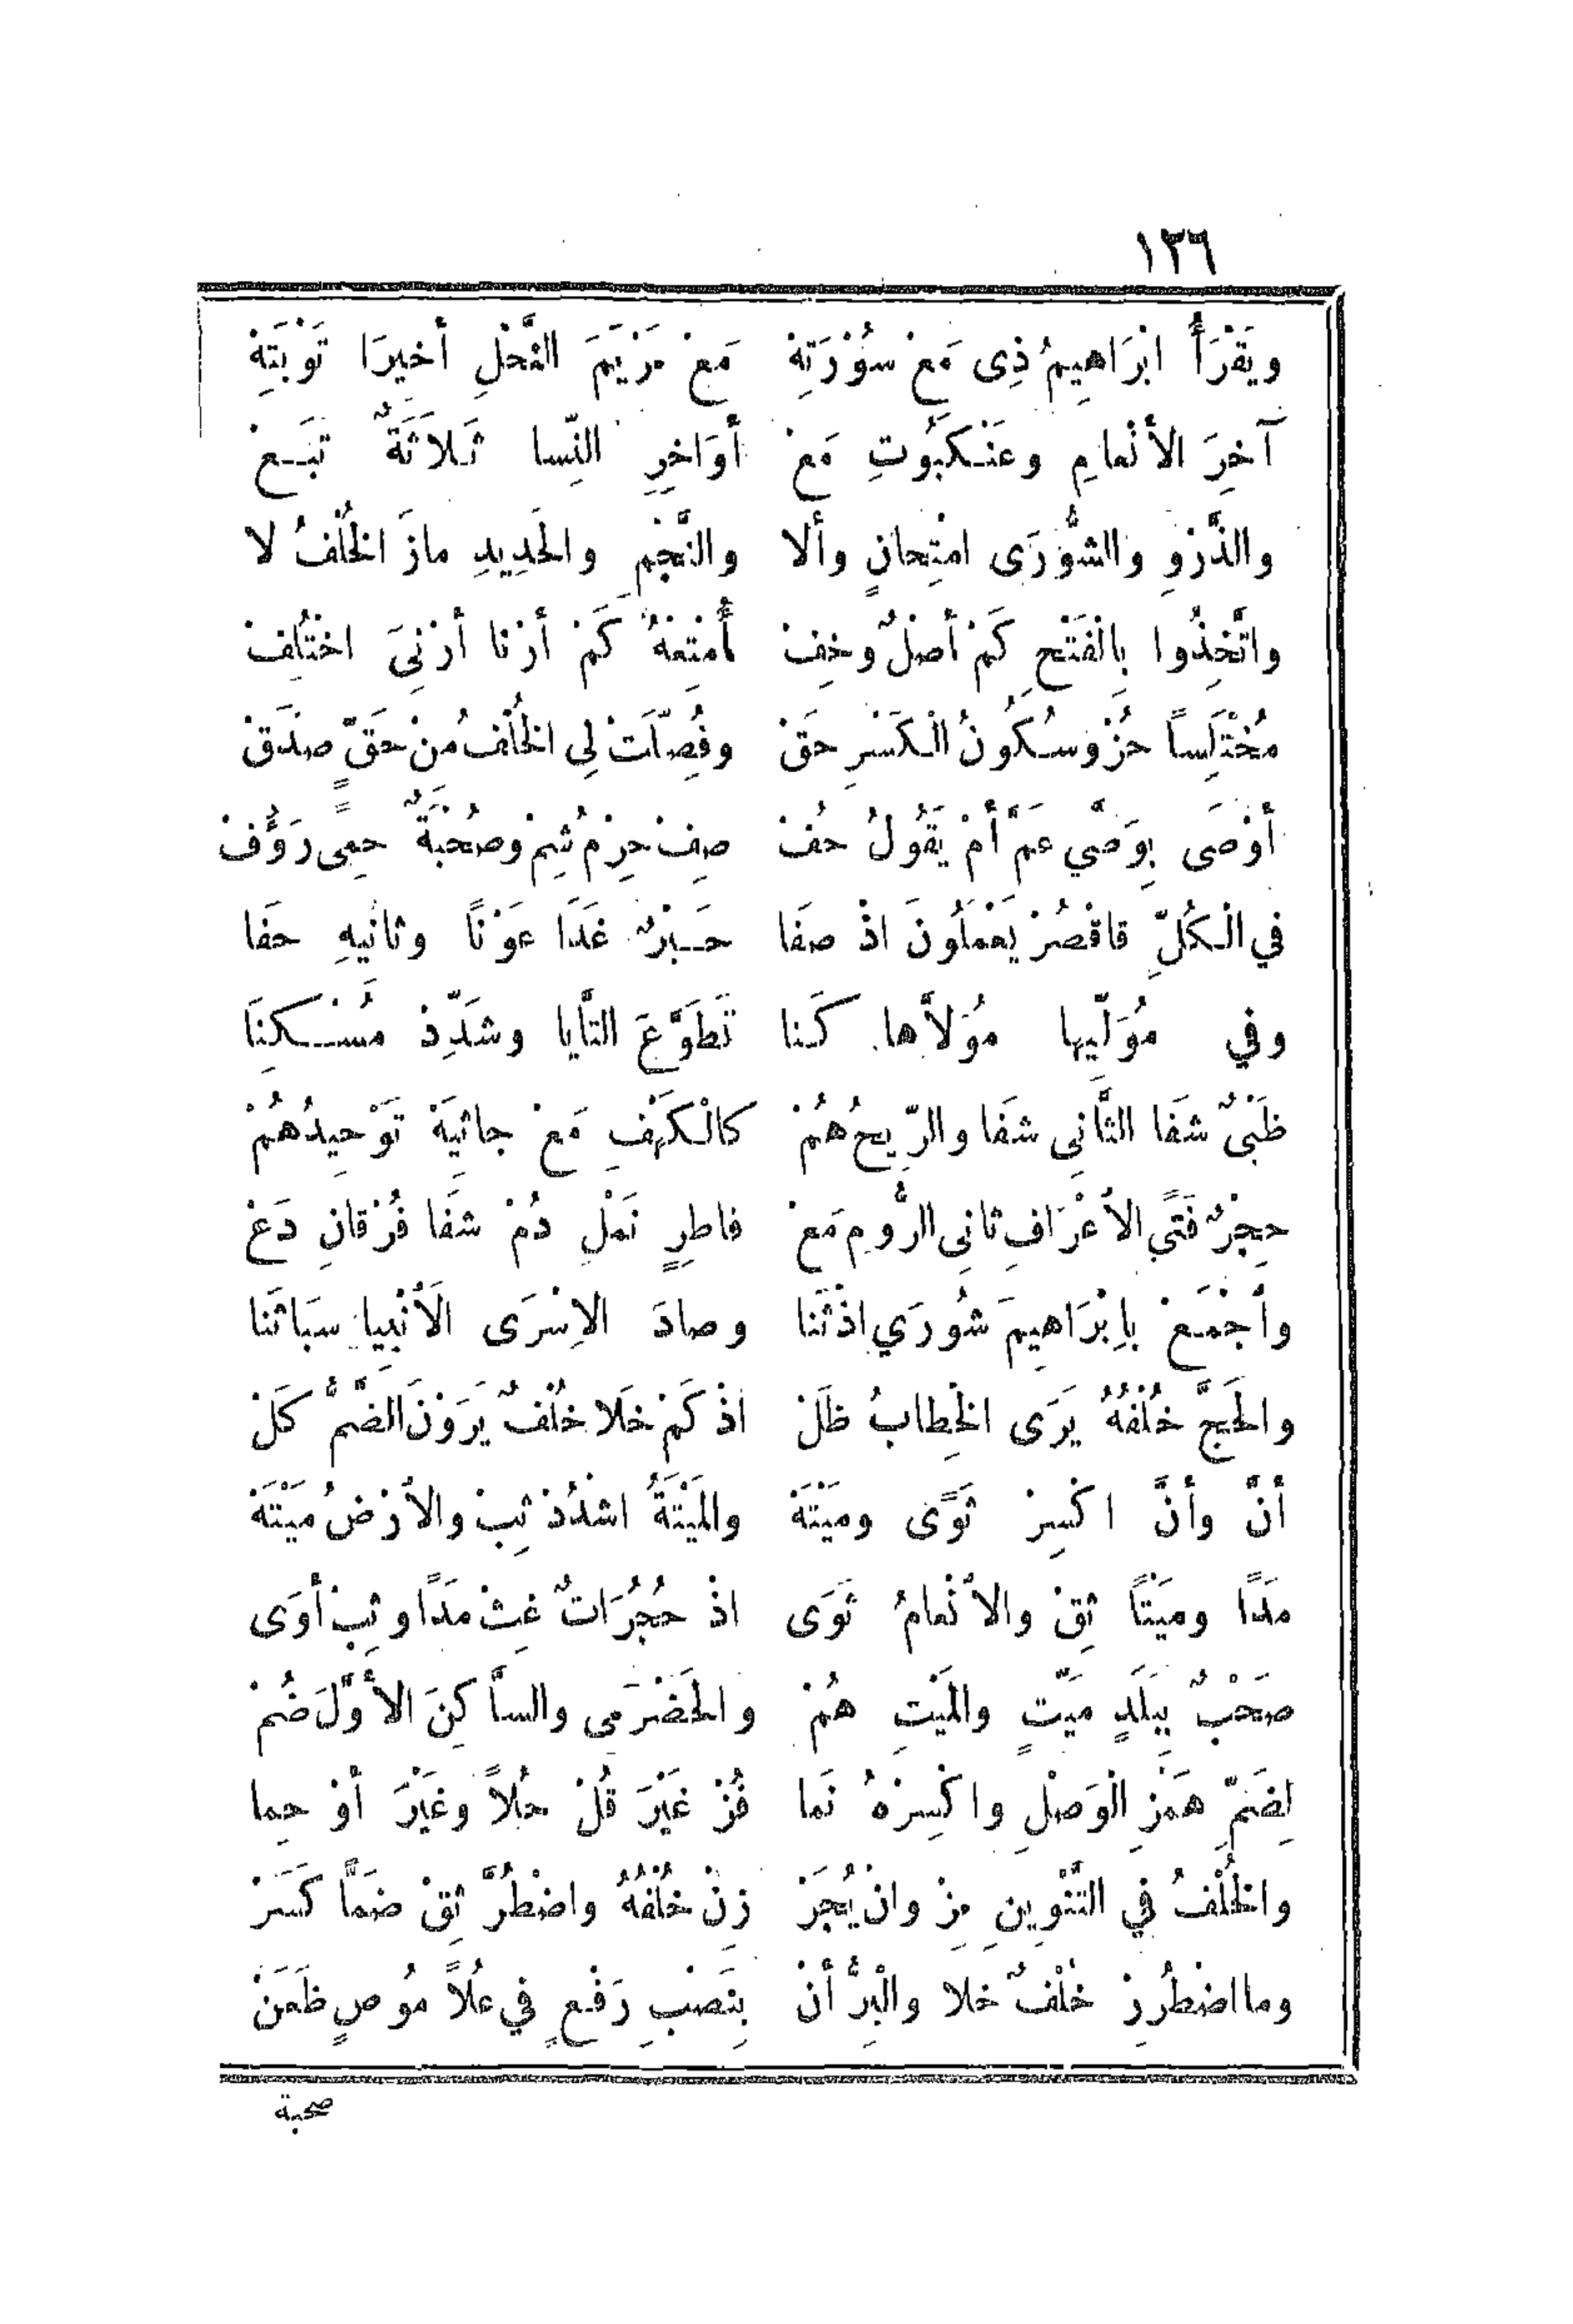 ١٣٦
ويَقْرَأُ ابْرَاهِيمُ ذِى مَعْ سُوْرَتِهْ مَعْ مَرْيَمَ النَّحْلِ أَخِيرَا تَوْبَتِهْ
آخِرَ الأَنْعامِ وعَنْكَبُوتِ مَعْ أَوَاخِرِ النِّسا ثَلاثَةٌ تَبَعْ
والذَّرْوِ والشُّوْرَى امْتِحانٍ وألا والنَّجْمِ والحَدِيدِ مازَ الخُلْفُ لا
واتَّخِذُوا بِالْفَتْحِ كَمْ أصْلٌ وخِفْ أُمْتِعْهُ كَمْ أرْنا أرْنِىَ اخْتُلِفْ
مُخْتَلِساً حُزْ وسُكُونُ الْكَسْرِ حَقْ وفُصِّلَتْ لِى الخُلْفُ مِنْ حَقٍّ صَدَقْ
أَوْصَى بِوَصَّي عَمَّ أَمْ يَقُولُ حُفْ صِفْ حِرْمُ شِمْ وصُحْبَةٌ حِمًى رَؤُفْ
في الْكُلِّ فاقْصُرْ يَعْمَلُونَ اذْ صَفَا حَبْرٌ غَدَا عَوْنًا وثانِيهِ حَفا
وفي مُوَلِّيها مُوَلاَّها كَنا تَطَوَّعَ التَّايا وشَدِّدْ مُسْكِنَا
ظَبْىٌ شَفَا الثَّانِى شَفَا والرِّيحُ هُمْ كالْكَهْفِ مَعْ جاثِيَةْ تَوْحِيدُهُمْ
حِجْرٌ فَتًى الأَعْرَافِ ثانِى الرُّومِ مَعْ فاطِرٍ نَمْلِ دُمْ شَفَا فُرْقانِ دَعْ
واجْمَعْ بِاِبْرَاهِيمَ شُورَي اذْ ثَنَا وصادَ الاِسْرَى الأَنْبِيا سَبَا ثَنا
والحَجِّ خُلْفُهُ يَرَى الخِطابُ ظَلْ اذْ كَمْ خَلا خُلْفٌ يَرَوْنَ الضَّمُّ كَلْ
أنَّ وأنَّ اكْسِرْ ثَوًى ومَيْتَةْ والمَيْتَةُ اشْدُدْ ثِبْ والأَرْضُ مَيْتَةْ
مَدًا ومَيْتًا ثِقْ والأَنْعامُ ثَوَى اذْ حُجُرَاتٌ غِثْ مَدًا وثِبْ أوَى
صَحْبٌ بِبَلَدٍ مَيْتٍ والمَيْتِ هُمْ والحَضْرَمِى والسَّاكِنَ الأَوَّلَ ضُمْ
لِضَمِّ هَمْزِ الْوَصْلِ واكْسِرْهُ نَما فُزْ غَيْرَ قُلْ حُلاً وغَيْرَ أوْ حِما
والخُلْفُ في التَّنْوِينِ مِزْ وانْ يُجَرْ زِنْ خُلْفُهُ واضْطُرَّ ثِقْ ضَمًّا كَسَرْ
وما اضْطُرِرْ خُلْفٌ خَلا والْبِرُّ أنْ بِنَصْبِ رَفْعٍ في عُلاً مُوصٍ ظَعَنْ
صحبة